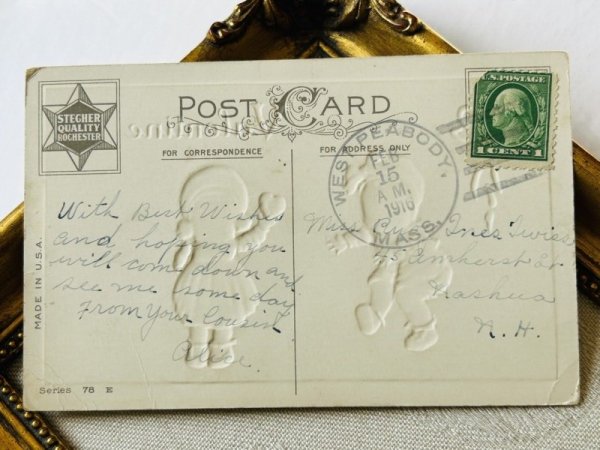 STEGHER
QUALITY
ROCHESTER
POST CARD
FOR CORRESPONDENCE
FOR ADDRESS ONLY
U.S. POSTAGE
1 CENT 1
WEST PEABODY,
FEB
15
A.M.
1916
MASS.
With Best Wishes
and hoping you
will come down and
see me some day
From Your Cousin
Alice.
Miss Inez
45 Amherst St
Nashua
N. H.
MADE IN U.S.A.
Series 78 E